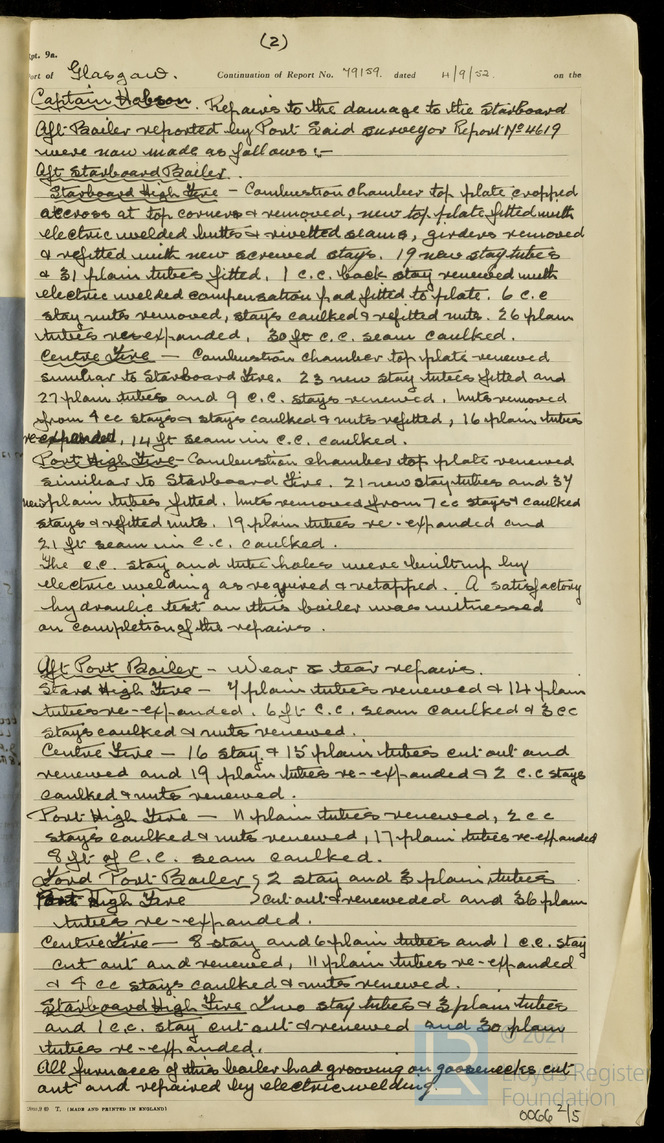 (2)
Rpt. 9a.
Port of Glasgow. Continuation of Report No. 79159. dated 4/9/52. on the
Captain Hobson. Repairs to the damage to the Starboard
Aft Boiler reported by Port Said surveyor Report No 4619
were now made as follows :-
Aft Starboard Boiler.
Starboard High Fire - Combustion chamber top plate cropped
accross at top corners & removed, new top plate fitted with
electric welded butts & rivetted seams, girders removed
& refitted with new screwed stays. 19 new stay tubes
& 31 plain tubes fitted. 1 c.c. back stay renewed with
electric welded compensation pad fitted to plate. 6 c.c
stay nuts removed, stays caulked & refitted nuts. 26 plain
tubes re-expanded, 30 ft c.c. seam caulked.
Centre Fire - Combustion chamber top plate renewed
similar to Starboard Fire. 23 new stay tubes fitted and
27 plain tubes and 9 C.C. stays renewed. Nuts removed
from 4 cc stays & stays caulked & nuts refitted, 16 plain tubes
re-expanded, 14 ft seam in C.C. caulked.
Port High Fire - Combustion chamber top plate renewed
similiar to Starboard Fire. 21 new stay tubes and 34
new plain tubes fitted. Nuts removed from 7 cc stays & caulked
stays & refitted nuts. 19 plain tubes re-expanded and
21 ft seam in C.C. caulked.
The c.c. stay and tube holes were built up by
electric welding as required & retapped. A satisfactory
hydraulic test on this boiler was witnessed
on completion of the repairs.
Aft Port Boiler - Wear & tear repairs.
Starbd High Fire - 7 plain tubes renewed & 14 plain
tubes re-expanded. 6 ft C.C. seam caulked & 3 cc
stays caulked & nuts renewed.
Centre Fire - 16 stay & 15 plain tubes cut out and
renewed and 19 plain tubes re-expanded & 2 c.c stays
caulked & nuts renewed.
Port High Fire - 11 plain tubes renewed, 2 c c
stays caulked & nuts renewed, 17 plain tubes re-expanded
8 ft of C.C. seam caulked.
Ford Port Boiler } 2 stay and 3 plain tubes
Port High Fire } cut out & reneweded and 36 plain
tubes re-expanded.
Centre Fire - 8 stay and 6 plain tubes and 1 c.c. stay
cut out and renewed, 11 plain tubes re-expanded
& 4 cc stays caulked & nuts renewed.
Starboard High Fire Two stay tubes & 3 plain tubes
and 1 c.c. stay cut out & renewed and 30 plain
tubes re-expanded.
All furnaces of this boiler had grooving on goosenecks cut
out and repaired by electric welding.
T. (MADE AND PRINTED IN ENGLAND)
© 2021
Lloyd's Register
Foundation
0066 2/5